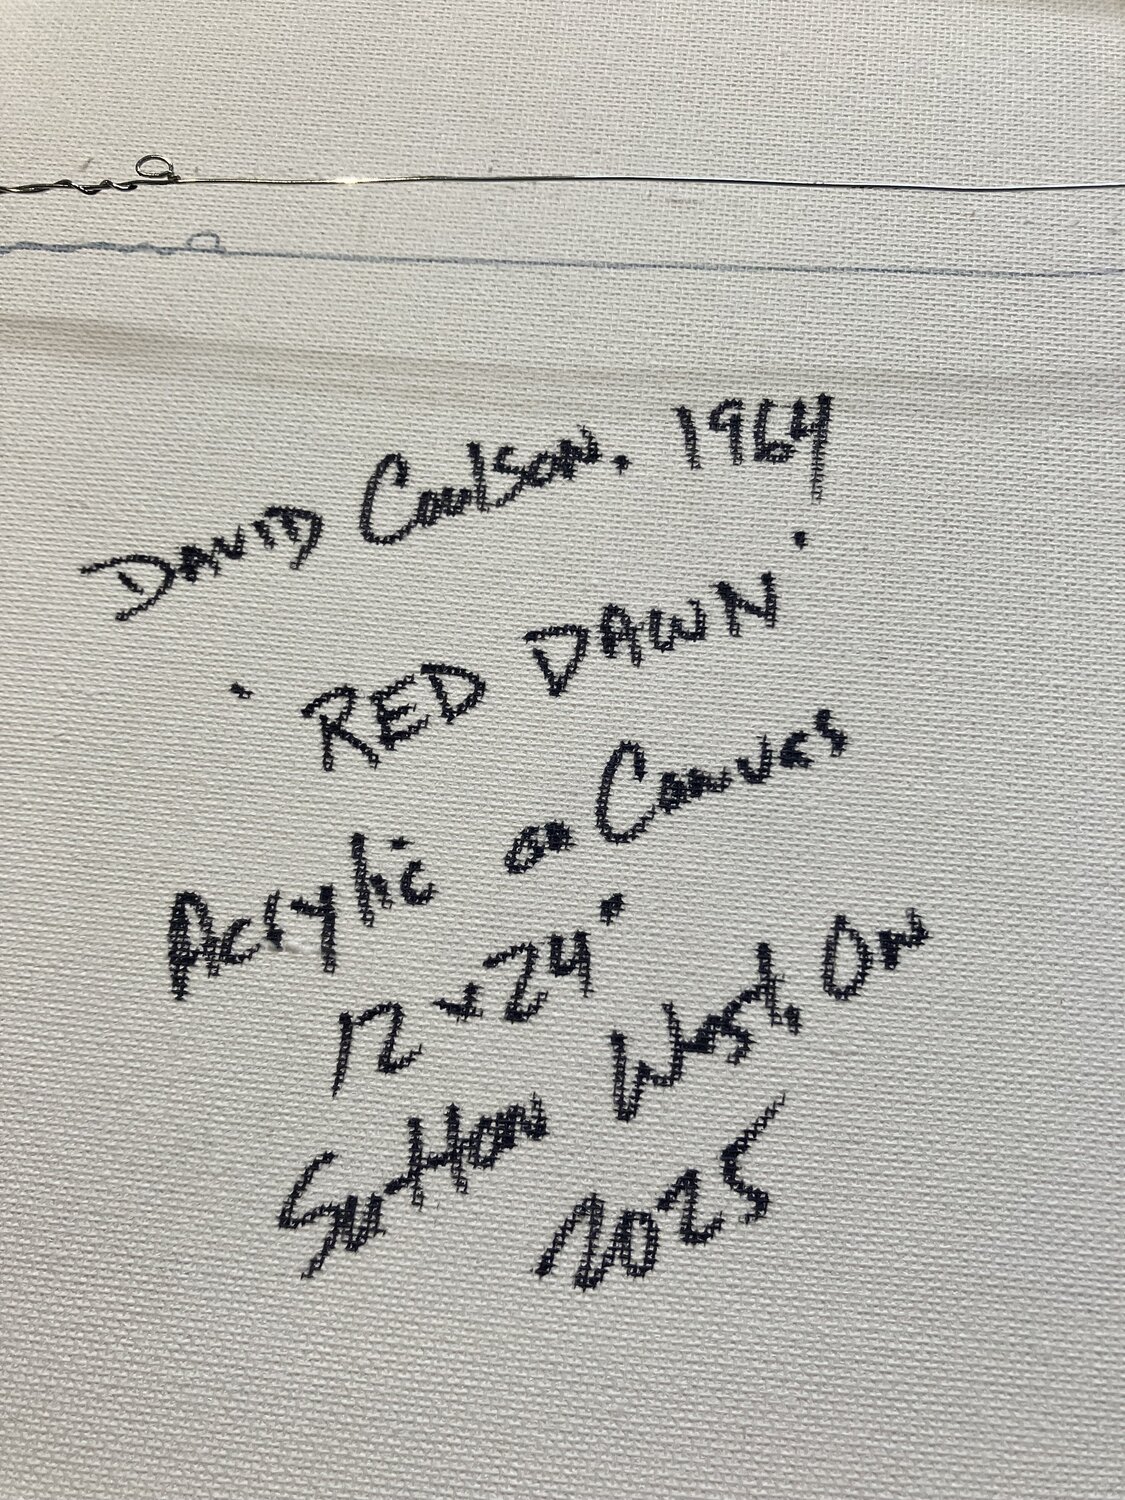 DAVID Coulson. 1964
' RED DAWN '
Acrylic on Canvas
12 x 24"
Sutton West, On
2025